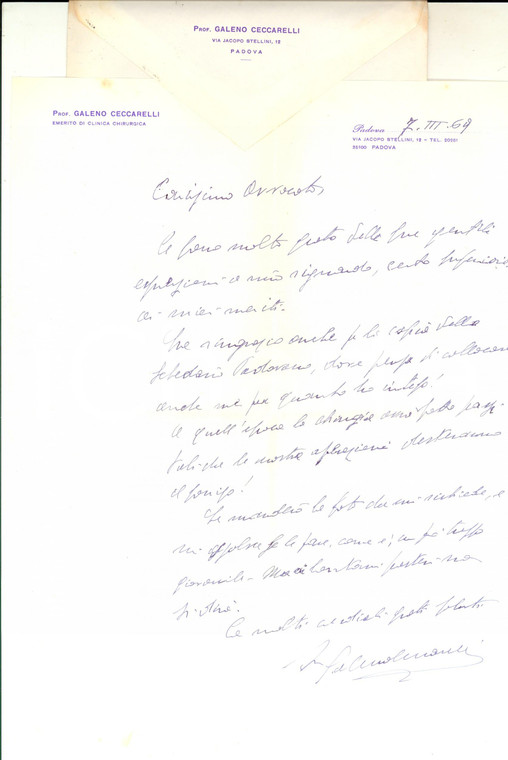 PROF. GALENO CECCARELLI
VIA JACOPO STELLINI, 12
PADOVA
PROF. GALENO CECCARELLI
EMERITO DI CLINICA CHIRURGICA
Padova 7. III. 69
VIA JACOPO STELLINI, 12 - TEL. 20351
35100 PADOVA
Carissimo Avvocato,
Le sono molto grato delle Sue gentili
espressioni a mio riguardo, certo superiori
ai miei meriti.
La ringrazio anche per la copia dello
Schedario Padovano, dove pensa di collocare
anche me per quanto ho inteso!
A quell'epoca la chirurgia
che le nostre operazioni destavano
Le manderò la foto da mi richiede, e
come è, un po' troppo
giovanile
Le molti cordiali grati saluti